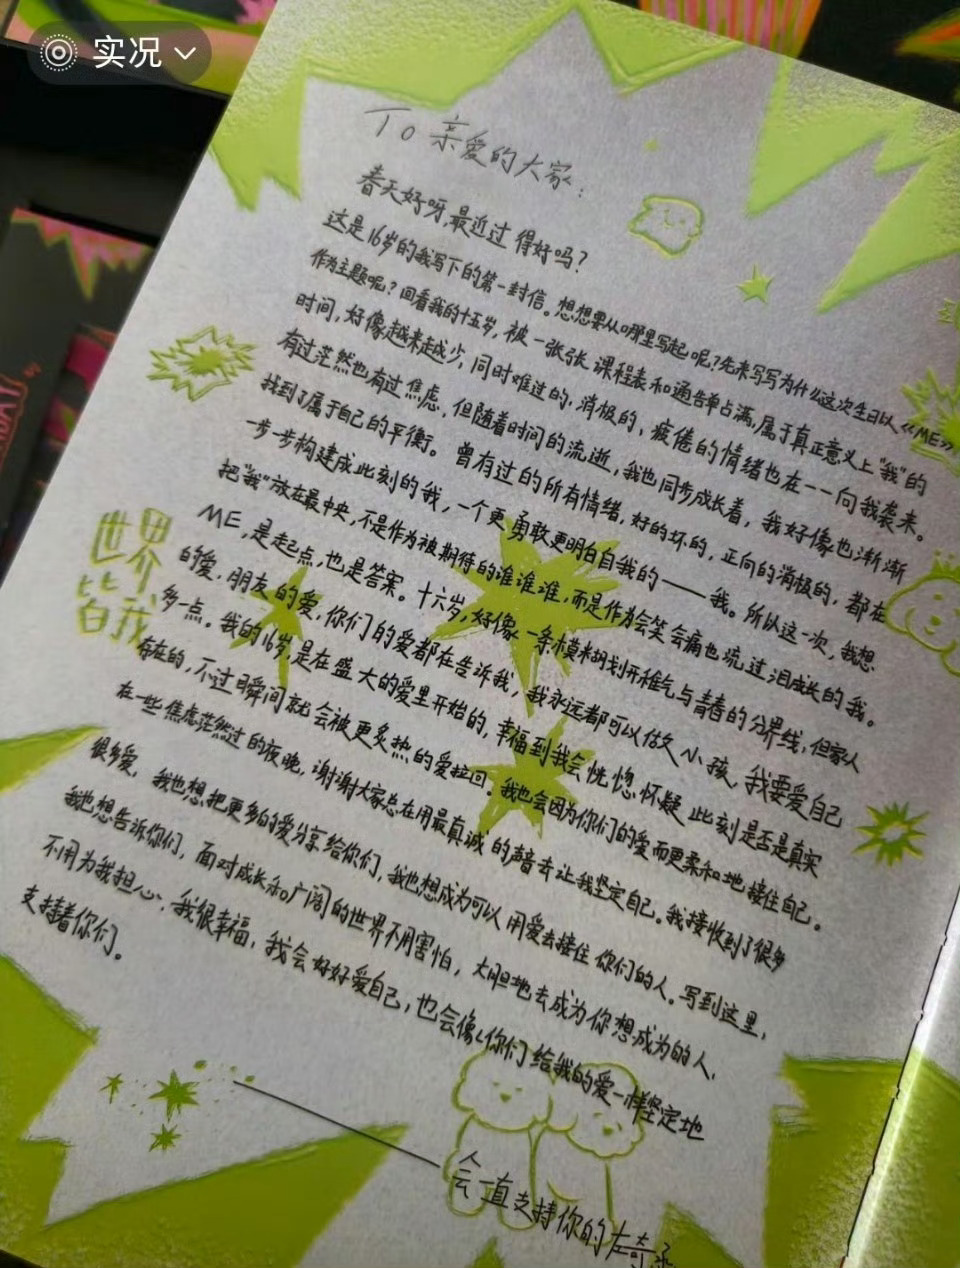 实况
To 亲爱的大家：
春天好呀，最近过得好吗？
这是16岁的我写下的第一封信。想想要从哪里写起呢？先来写写为什么这次生日以《ME》
作为主题呢？回看我的十五岁，被一张张课程表和通告单占满，属于真正意义上“我”的
时间，好像越来越少，同时难过的，消极的，疲倦的情绪也在一一向我袭来。
有过茫然也有过焦虑，但随着时间的流逝，我也同步成长着，我好像也渐渐
找到了属于自己的平衡。曾有过的所有情绪，好的坏的，正向的消极的，都在
一步步构建成此刻的我，一个更勇敢更明白自我的——我。所以这一次，我想
把“我”放在最中央，不是作为被期待的谁谁谁，而是作为会笑会痛也流过泪成长的我。
ME，是起点，也是答案。十六岁，好像一条模糊划开稚气与青春的分界线，但家人
的爱，朋友的爱，你们的爱都在告诉我，我永远都可以做小孩，我要爱自己
多一点。我的16岁，是在盛大的爱里开始的，幸福到我会恍惚，怀疑此刻是否是真实
存在的，不过瞬间就会被更炙热的爱拉回。我也会因为你们的爱而更柔和地接住自己。
在一些焦虑茫然过的夜晚，谢谢大家总在用最真诚的声音去让我坚定自己。我接收到了很多
很多爱，我也想把更多的爱分享给你们，我也想成为可以用爱去接住你们的人。写到这里，
我也想告诉你们，面对成长和广阔的世界不用害怕，大胆地去成为你想成为的人，
不用为我担心，我很幸福，我会好好爱自己，也会像你们给我的爱一样坚定地
支持着你们。
——会一直支持你的左奇
世界
皆我